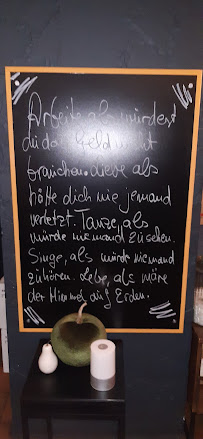 Arbeite als würdest
du das Geld nicht
brauchen. Liebe als
hätte dich nie jemand
verletzt. Tanze, als
würde niemand zusehen.
Singe, als würde niemand
zuhören. Lebe, als wäre
der Himmel auf Erden.